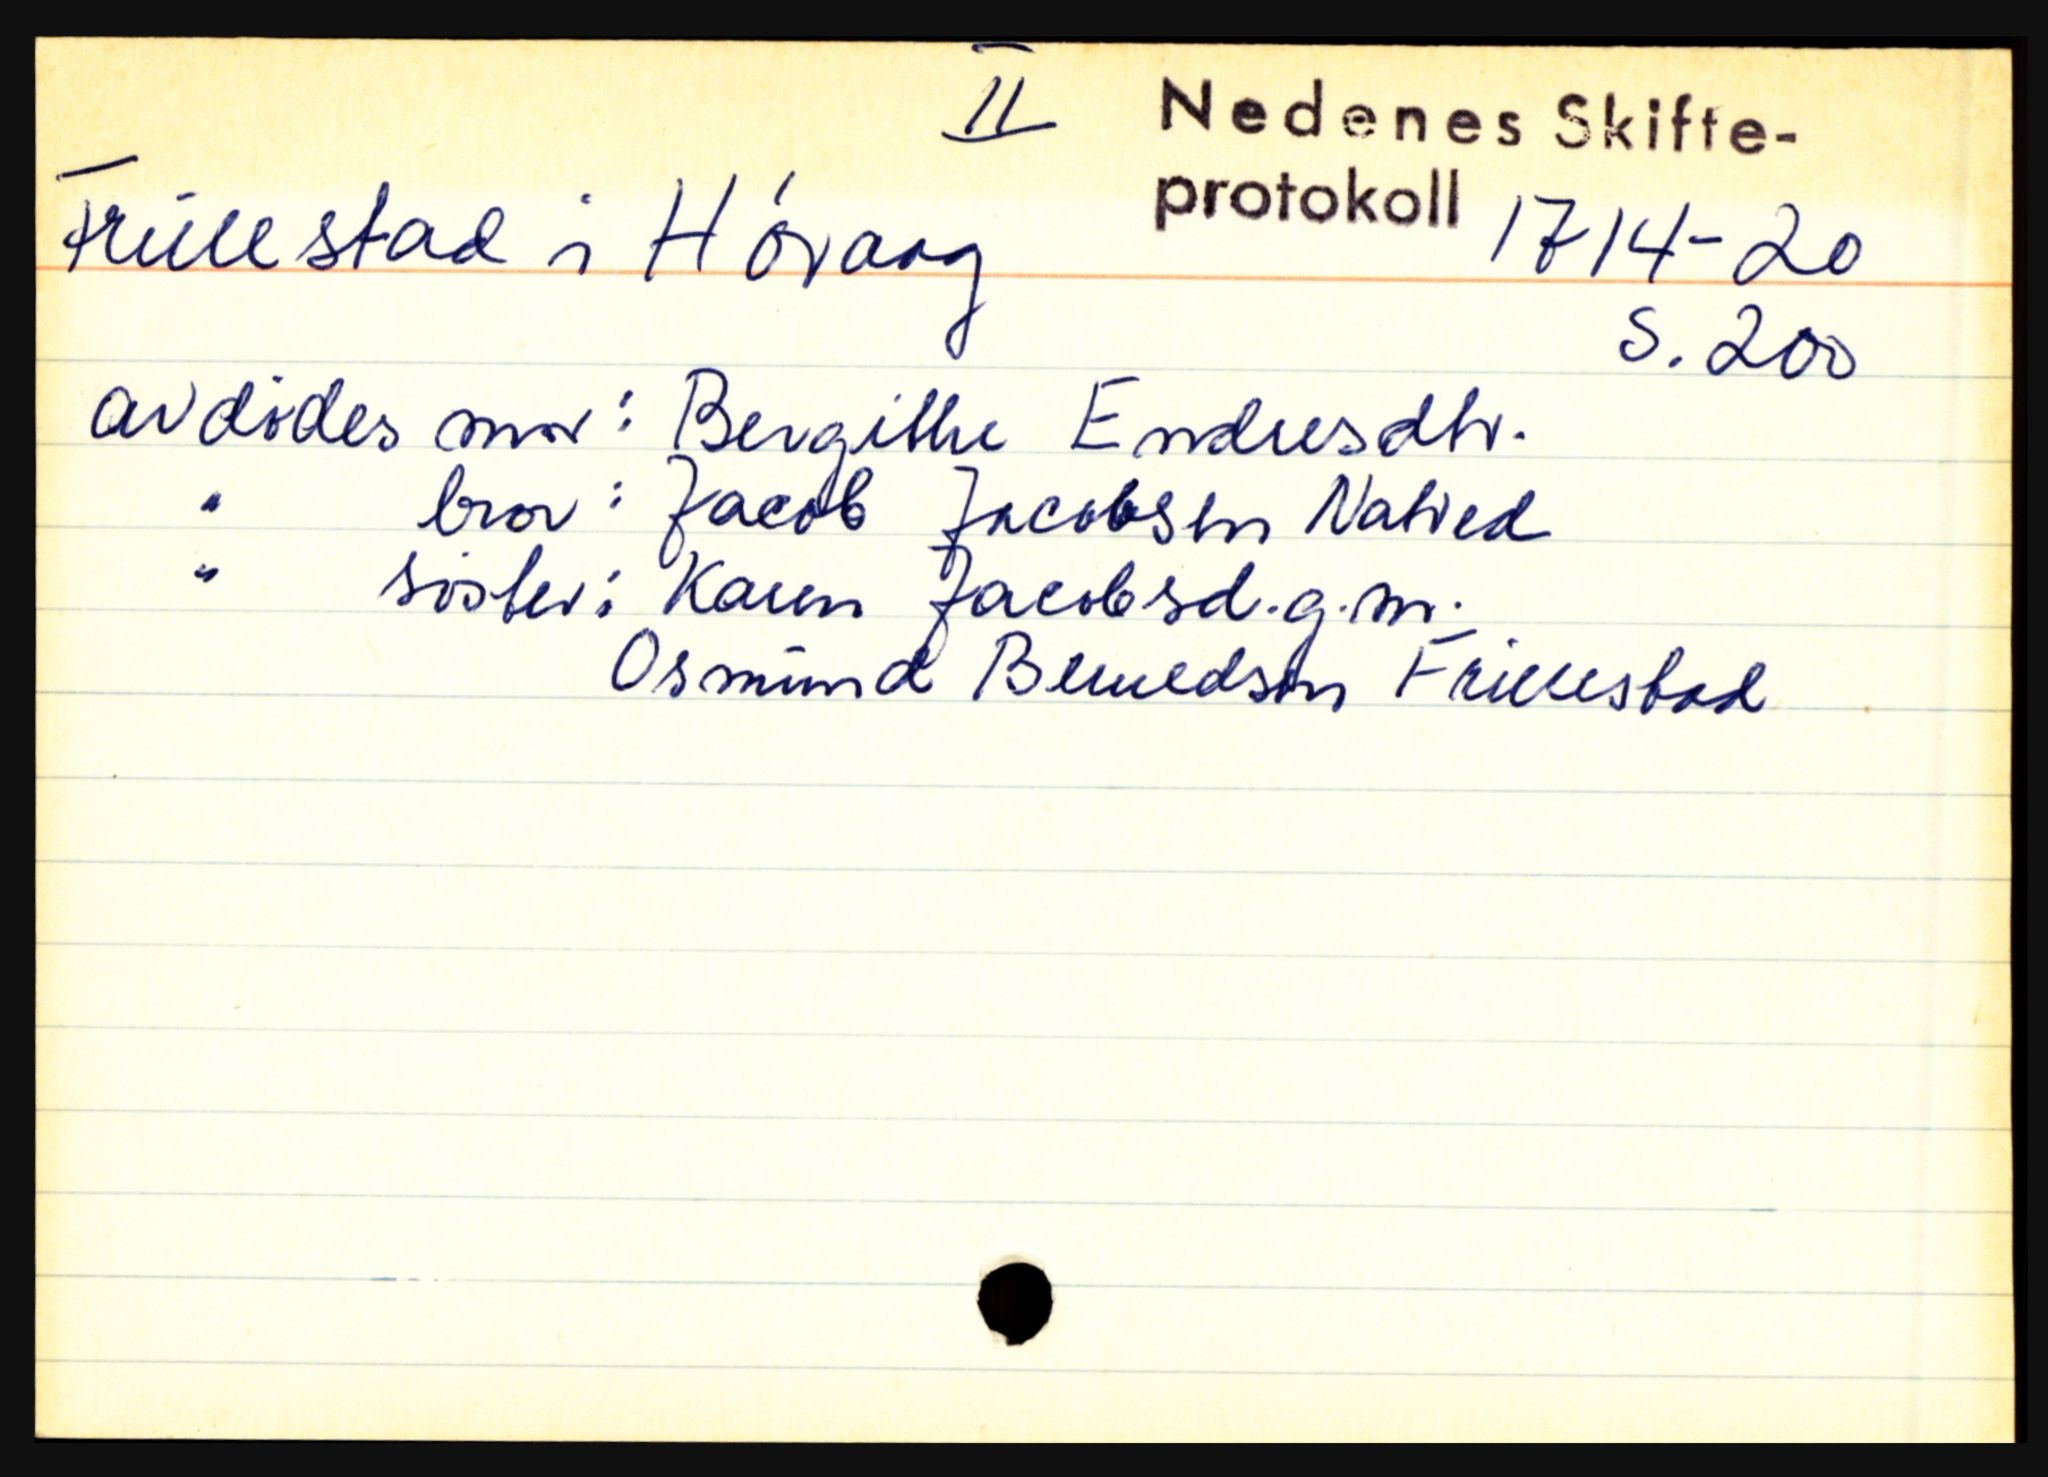 II Nedenes Skifte-
protokoll 1714-20
Frillestad i Høvaag
S. 200
avdødes mor: Bergithe Endresdtr.
" bror: Jacob Jacobsen Natved
" søster: Karen Jacobsd. g.m.
Osmund Berulfsen Frillestad